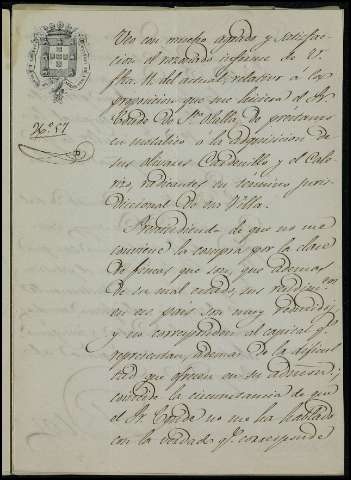 Nº 57
Veo con mucho agrado y satisfac-
cion el razonado informe de V.
fha. 11 del actual, relativo á la
proposicion que me hiciera el Sr.
Conde de Sta. Olalla de prestamo
en metalico o la adquisicion de
sus olivares Cardenillo y el Calo-
rizo, radicantes en termino juris-
diccional de esa Villa.
Prescindiendo de que no me
conviene la compra por la clase
de fincas que son, que ademas
de su mal estado, sus rendimtos
en ese pais son muy reducidos,
y no corresponden al capital qe.
representan, ademas de la dificul-
tad que ofrecen en su administ.;
concibo la circunstancia de que
el Sr. Conde no me ha hablado
con la verdad qe. corresponde